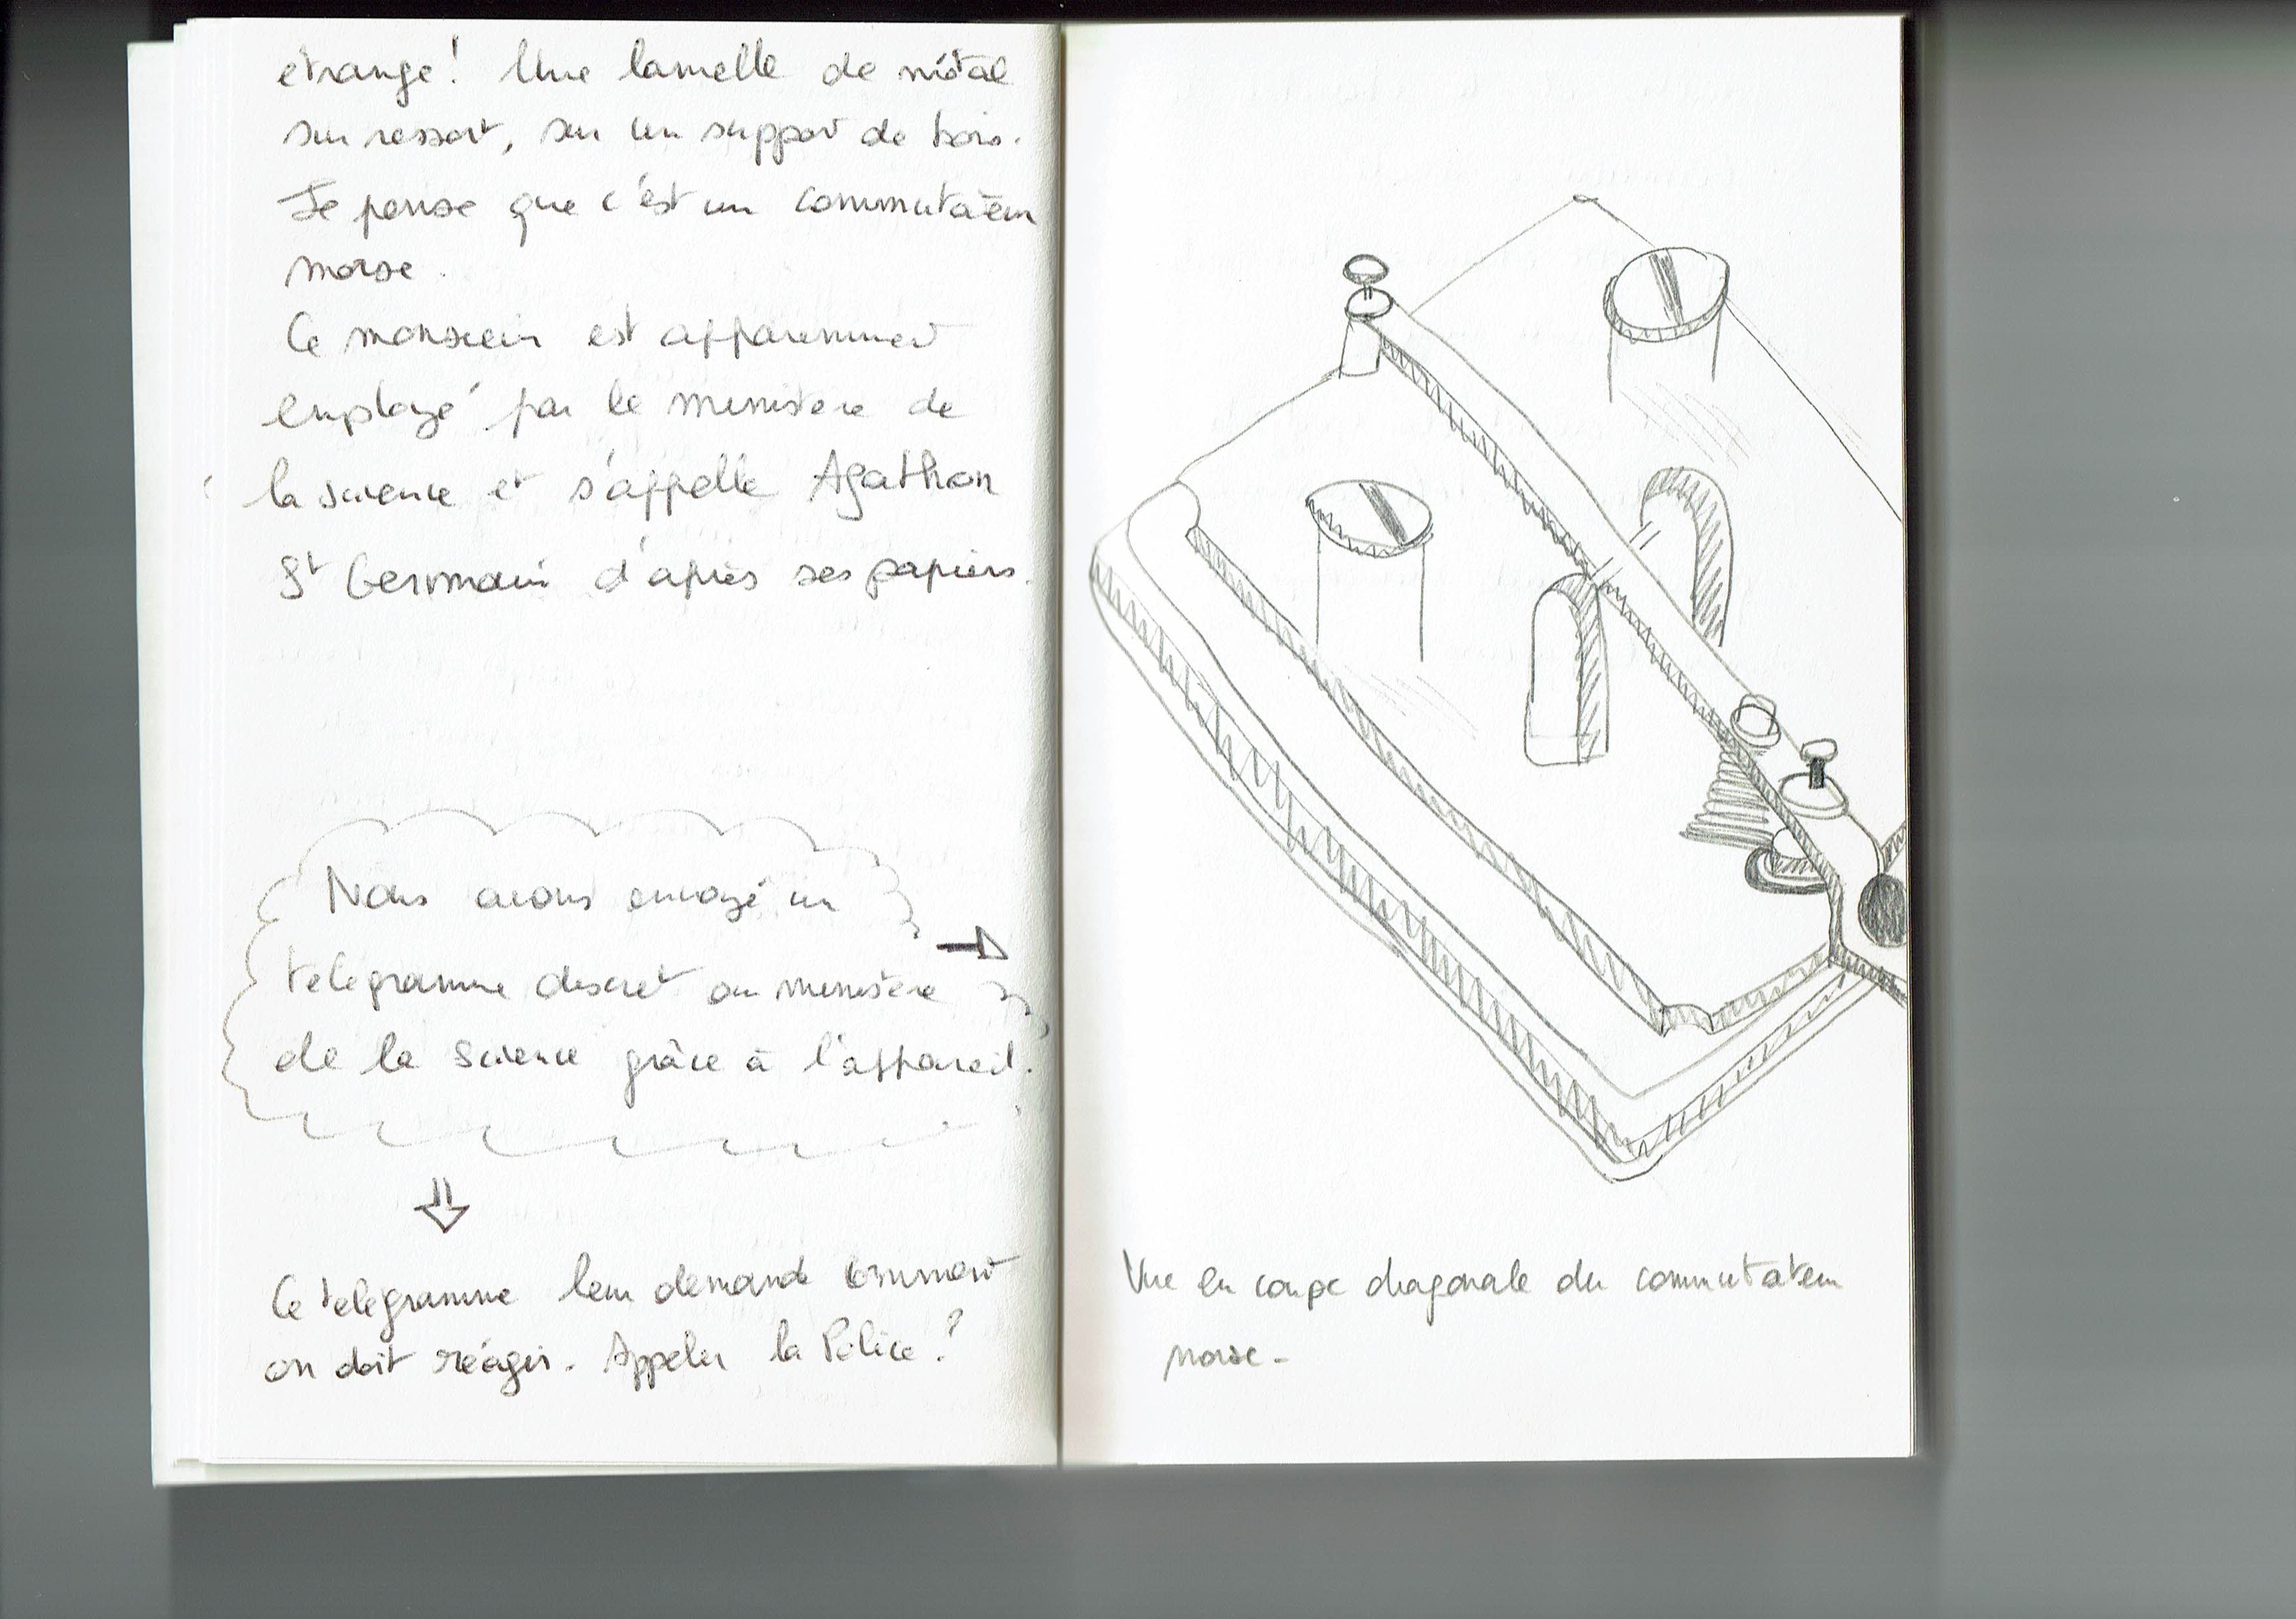 étrange! Une lamelle de métal
sur ressort, sur un support de bois.
Je pense que c'est un commutateur
morse.
Ce monsieur est apparemment
employé par le ministère de
la science et s'appelle Agathon
St Germain d'après ses papiers.
Nous avons envoyé un
télégramme discret au ministère
de la science grâce à l'appareil.
Ce télégramme leur demande comment
on doit réagir. Appeler la Police?
Vue en coupe diagonale du commutateur
morse-